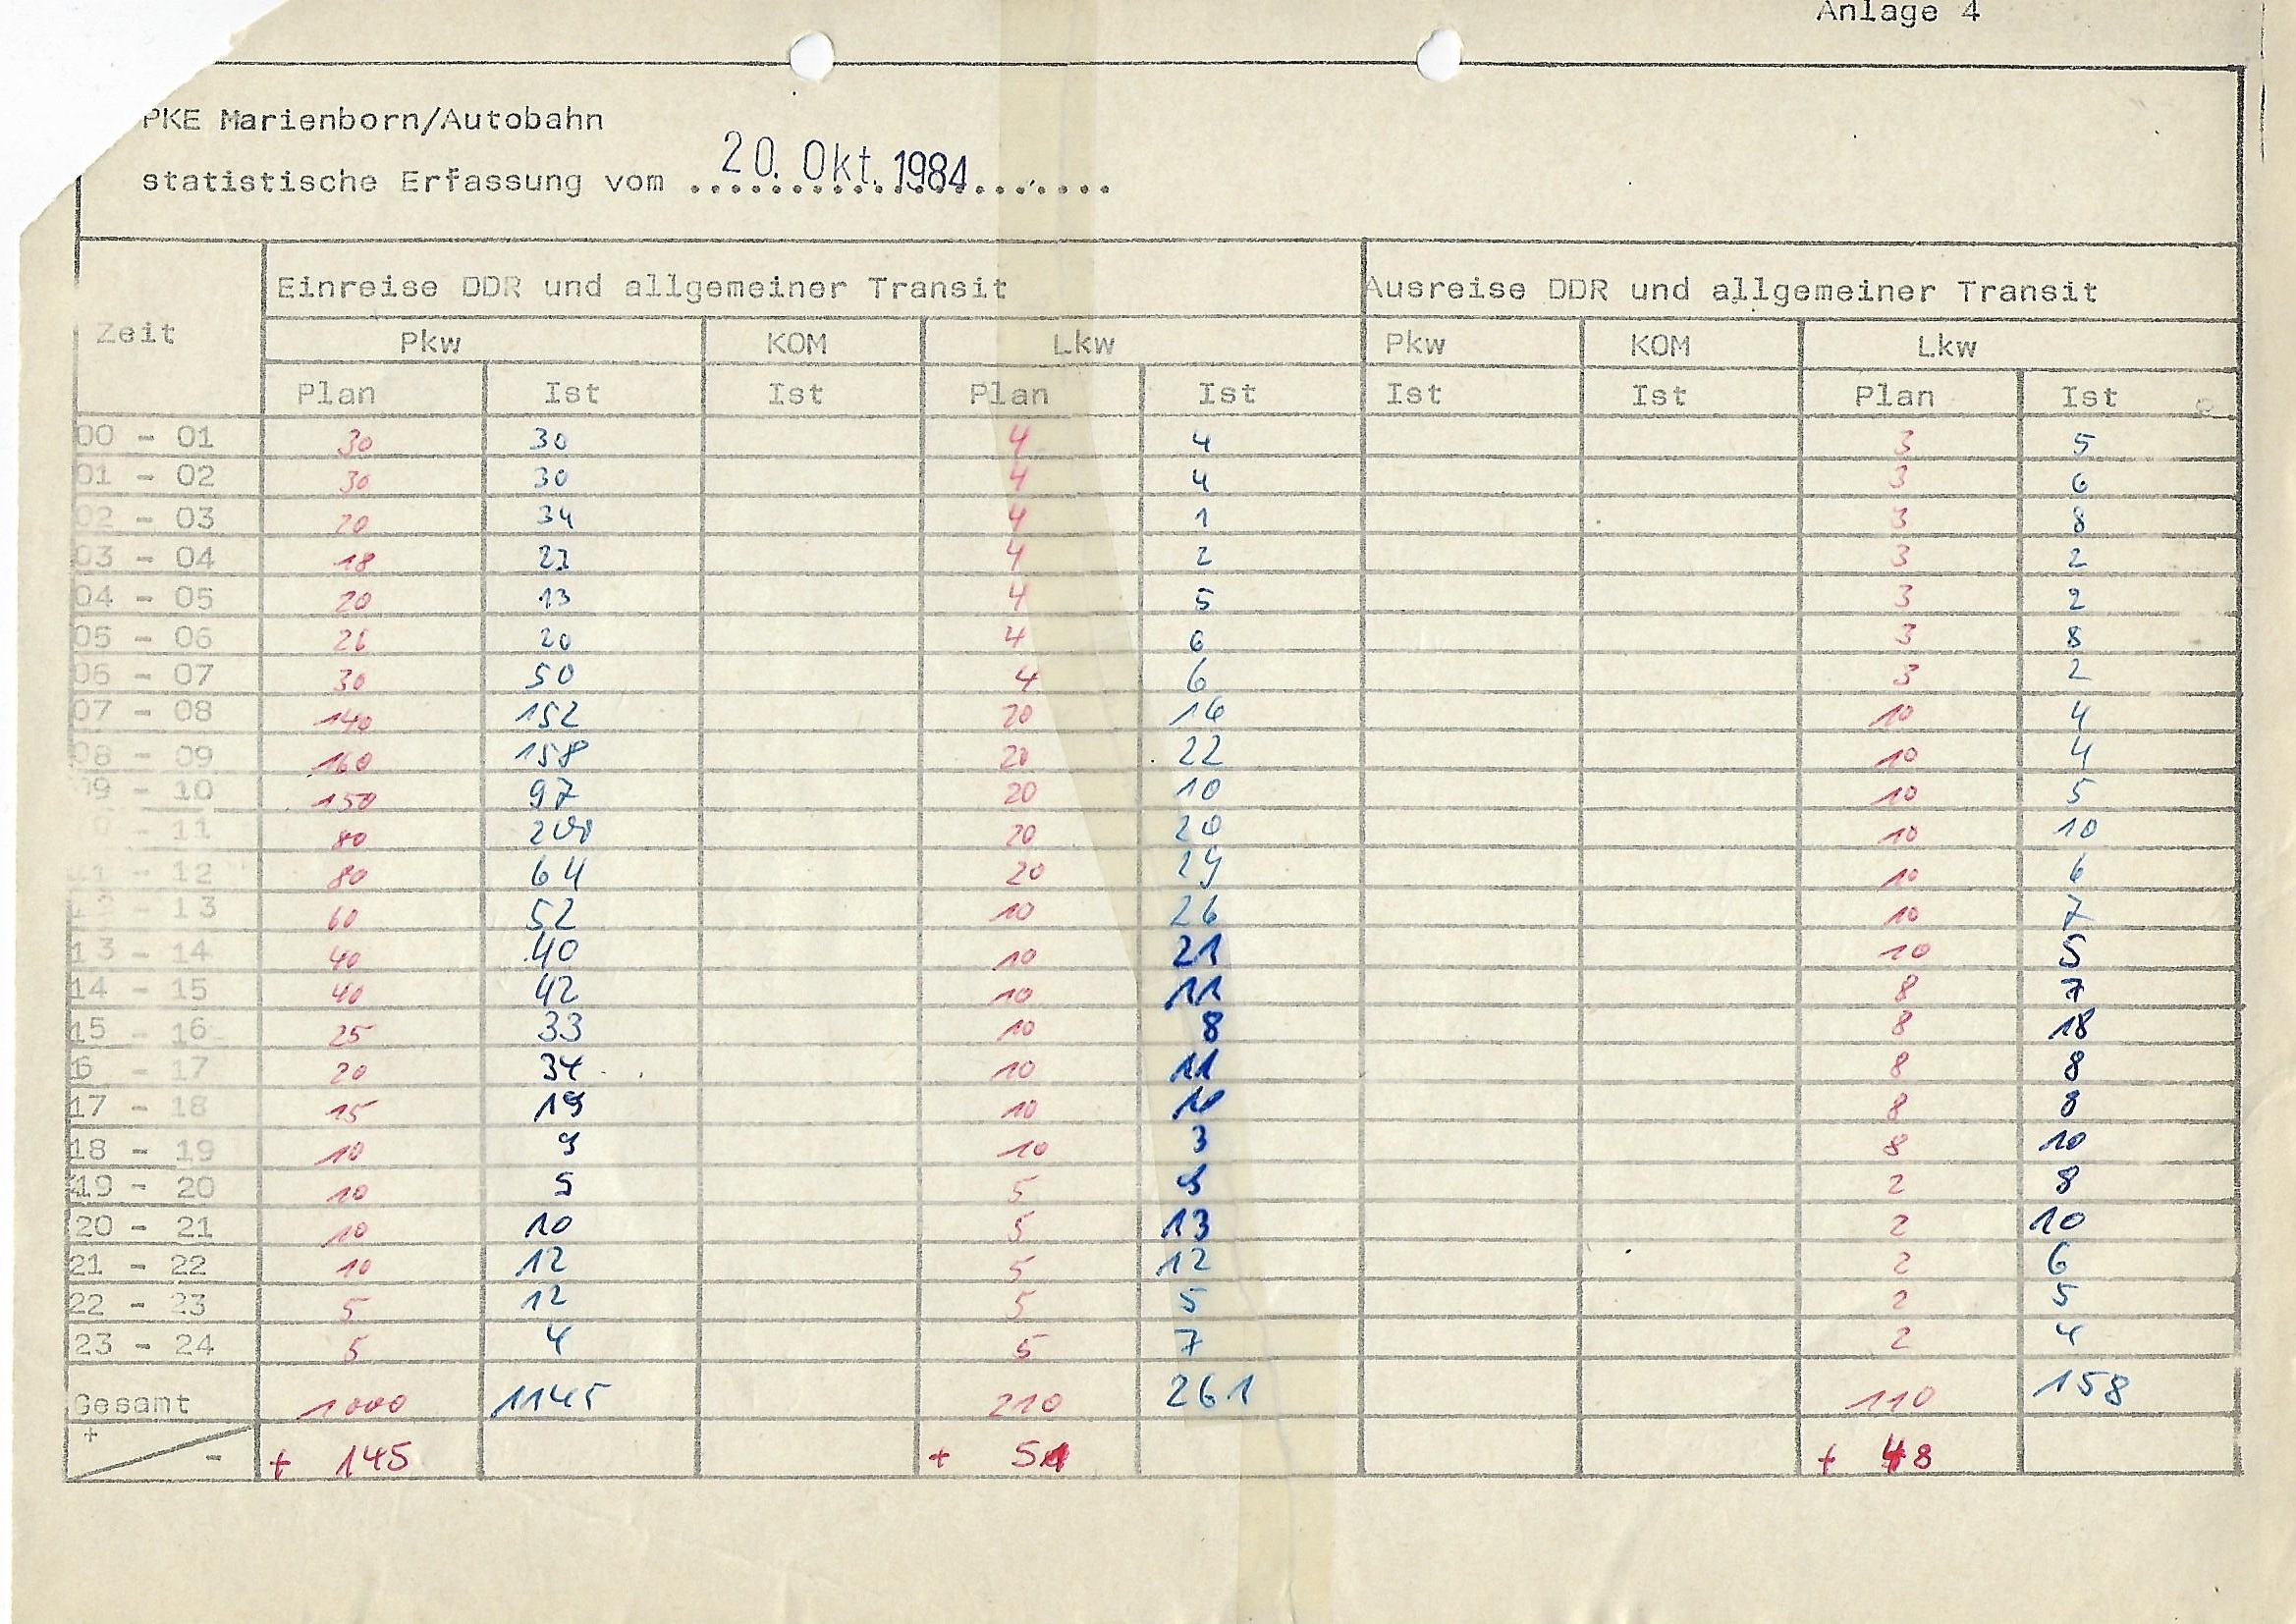 Anlage 4
PKE Marienborn/Autobahn
statistische Erfassung vom 20. Okt. 1984
Einreise DDR und allgemeiner Transit Ausreise DDR und allgemeiner Transit
Zeit Pkw KOM Lkw Pkw KOM Lkw
Plan Ist Ist Plan Ist Ist Ist Plan Ist
00 - 01 30 30 4 4 3 5
01 - 02 30 30 4 4 3 6
02 - 03 20 34 4 1 3 8
03 - 04 18 4 2 3 2
04 - 05 20 13 4 5 3 2
05 - 06 26 20 4 6 3 8
06 - 07 30 50 4 6 3 2
07 - 08 140 152 20 16 10 4
08 - 09 160 158 20 22 10 4
09 - 10 150 97 20 10 10 5
0 - 11 80 20 20 10 10
11 - 12 80 64 20 29 10 6
12 - 13 60 52 10 26 10 7
13 - 14 40 40 10 21 10 5
14 - 15 40 42 10 11 8 7
15 - 16 25 33 10 8 8 18
6 - 17 20 34 10 11 8 8
17 - 18 15 19 10 10 8 8
18 - 19 10 9 10 3 8 10
19 - 20 10 5 5 9 2 8
20 - 21 10 10 5 13 2 10
21 - 22 10 12 5 12 2 6
22 - 23 5 12 5 5 2 5
23 - 24 5 4 5 7 2 4
Gesamt 1000 1145 210 261 110 158
+ - + 145 + 51 + 48